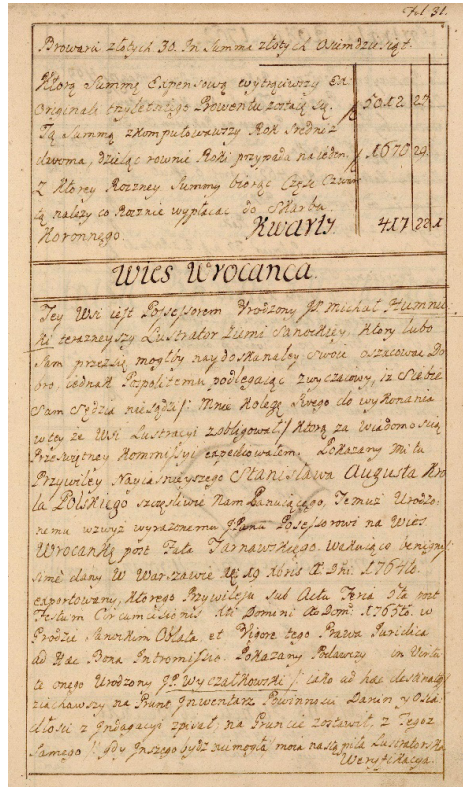 Fol 31.
Browaru złotych 30. In Summa złotych Osimdziesiąt.
Którą Summę Expensową wytrąciwszy Ex
Originali trzyletniego Prowentu zostaią się 5012 27
Tą Summą zkomputowawszy Rok Sredni z
dwoma, dzieląc rownie Roki przypada na ieden 1670 29
Z Ktorey Roczney Summy biorąc Częsc Czwar
tą należy co Rocznie wypłacac do Skarbu
Koronnego. Kwarty 417 22 1
Wies Wrocanca.
Tey Wsi iest Possessorem Urodzony JP. Michał Humnic
ki teraznieyszy Lustrator Ziemi Sanockiey, Ktory lubo
Sam przez się mogłby naydoskonaley Swoie oszacowac Do
bro, iednak Pospolitemu podlegaiąc zwyczaiowi, iż Siebie
Sam Sędzia niesądzi: Mnie Kolegę Swego do wykonania
w tey że Wsi Lustracyi zobligował / Ktorą za wiadomoscią
Przeswiętney Kommissyi expedyowałem. Pokazany mi tu
Przywiley Nayiasnieyszego Stanisława Augusta Kro
la Polskiego szczęsliwie Nam Panuiącego, Temuż Urodzo
nemu wzwyż wyrażonemu JPanu Possessorowi na Wies
Wrocankę post Fata Tarnawskiego. Wakuiącą benignis
sime dany W Warszawie die 19 Xbris A. Dni. 1764to.
exportowany, Ktorego Przywileiu sub Actu Feria post
Festum Circumcisionis Domini A. Dom: 1765to. w
Grodzie Sanockim Oblata, et Vigore tego Prawa Juridica
ad Hac Bona Intromissio. Pokazany Podawczy in Virtu
te onego Urodzony JP. Wyczałkowski / iako ad hac
ziachawszy na Grunt Inwentarz Powinnosci Danin y Osia
dłosci z Indagacyi spisał, na Gruncie zostawił, z Tegoż
samego / gdy Inszego bydz niemogła moia nastąpiła Lustratorska
Weryfikacya.